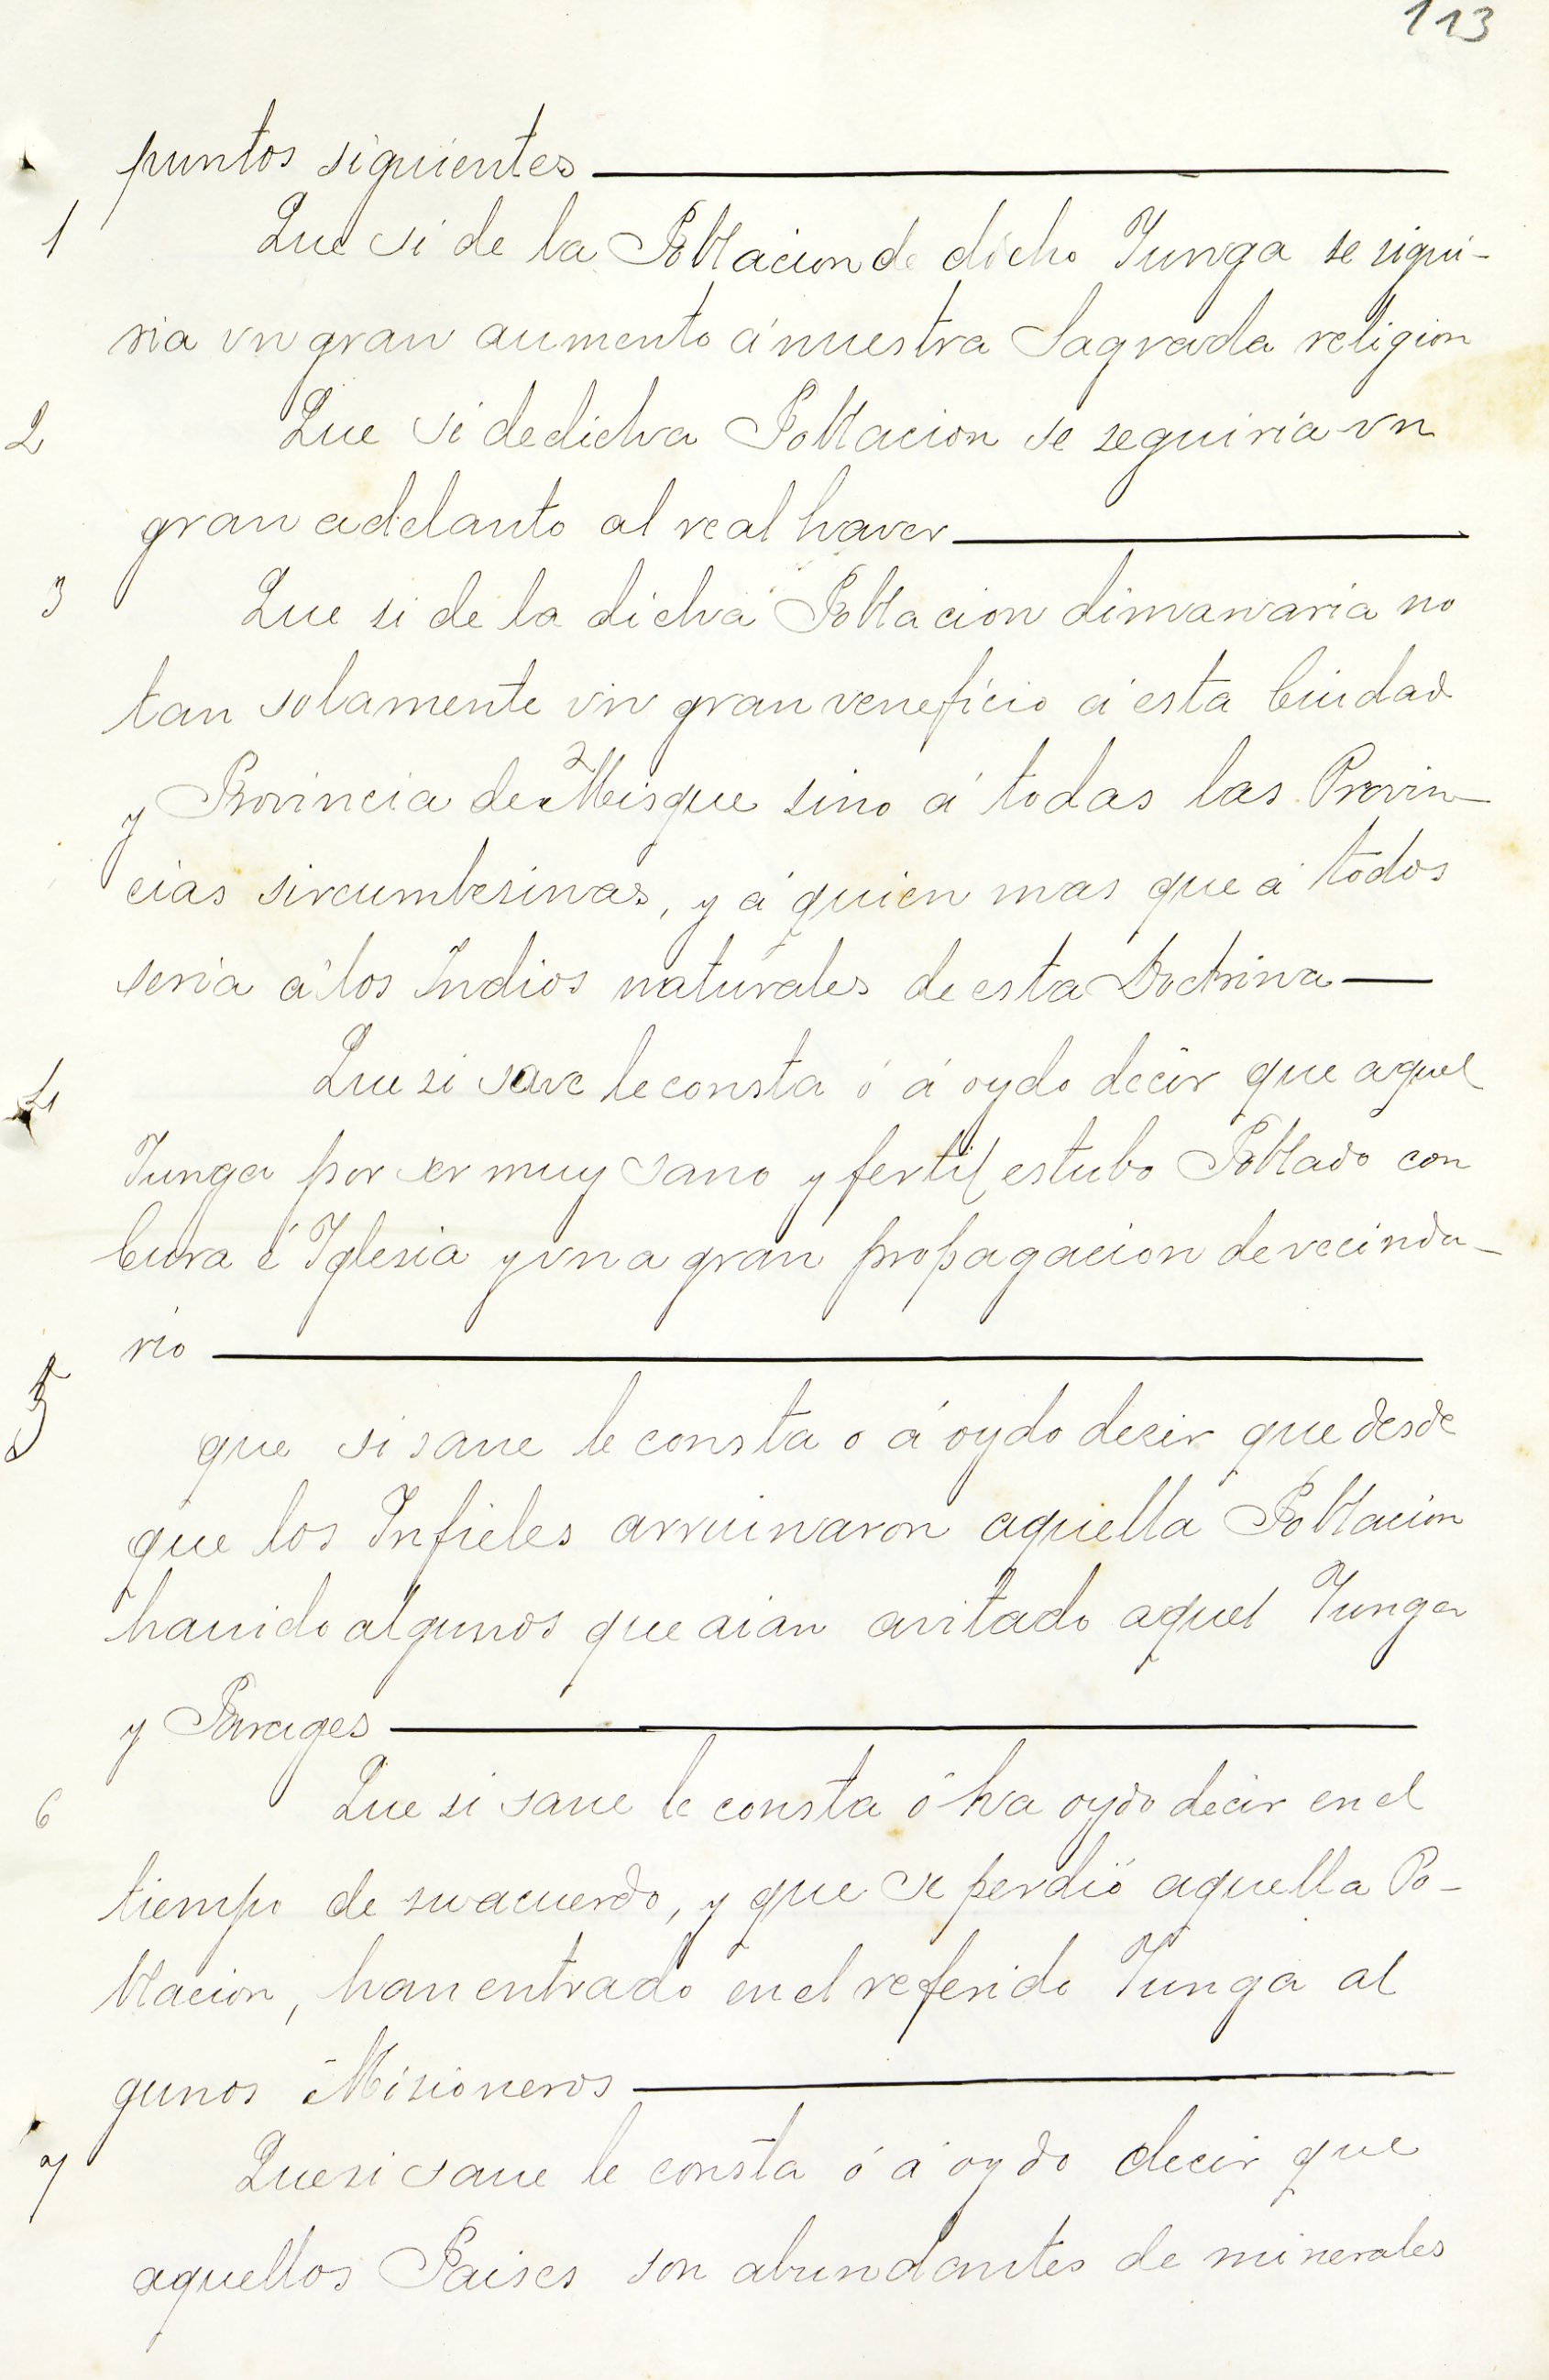 113
puntos siguientes
1 Que si de la Poblacion de dicho Yunga se sigui-
ria vn gran aumento á nuestra Sagrada religion
2 Que si de dicha Poblacion se seguiria vn
gran adelanto al real haver
3 Que si de la dicha Poblacion dimanaria no
tan solamente vn gran veneficio á esta Ciudad
y Provincia de Misque sino á todas las Provin-
cias sircumbesinas, y á quien mas que á todos
seria á los Indios naturales de esta Doctrina
4 Que si save le consta ó á oydo decir que aquel
Yunga por ser muy sano y fertil estubo Poblado con
Cura é Iglesia y vna gran propagacion de vecinda-
rio
5 que si saue le consta o á oydo desir que desde
que los Infieles arruinaron aquella Poblacion
hauido algunos que aian avitado aquel Yunga
y Parages
6 Que si saue le consta ó ha oydo decir en el
tiempo de su acuerdo, y que se perdió aquella Po-
blacion, han entrado en el referido Yunga al
gunos Misioneros
7 Que si saue le consta ó á oydo decir que
aquellos Paises son abundantes de minerales